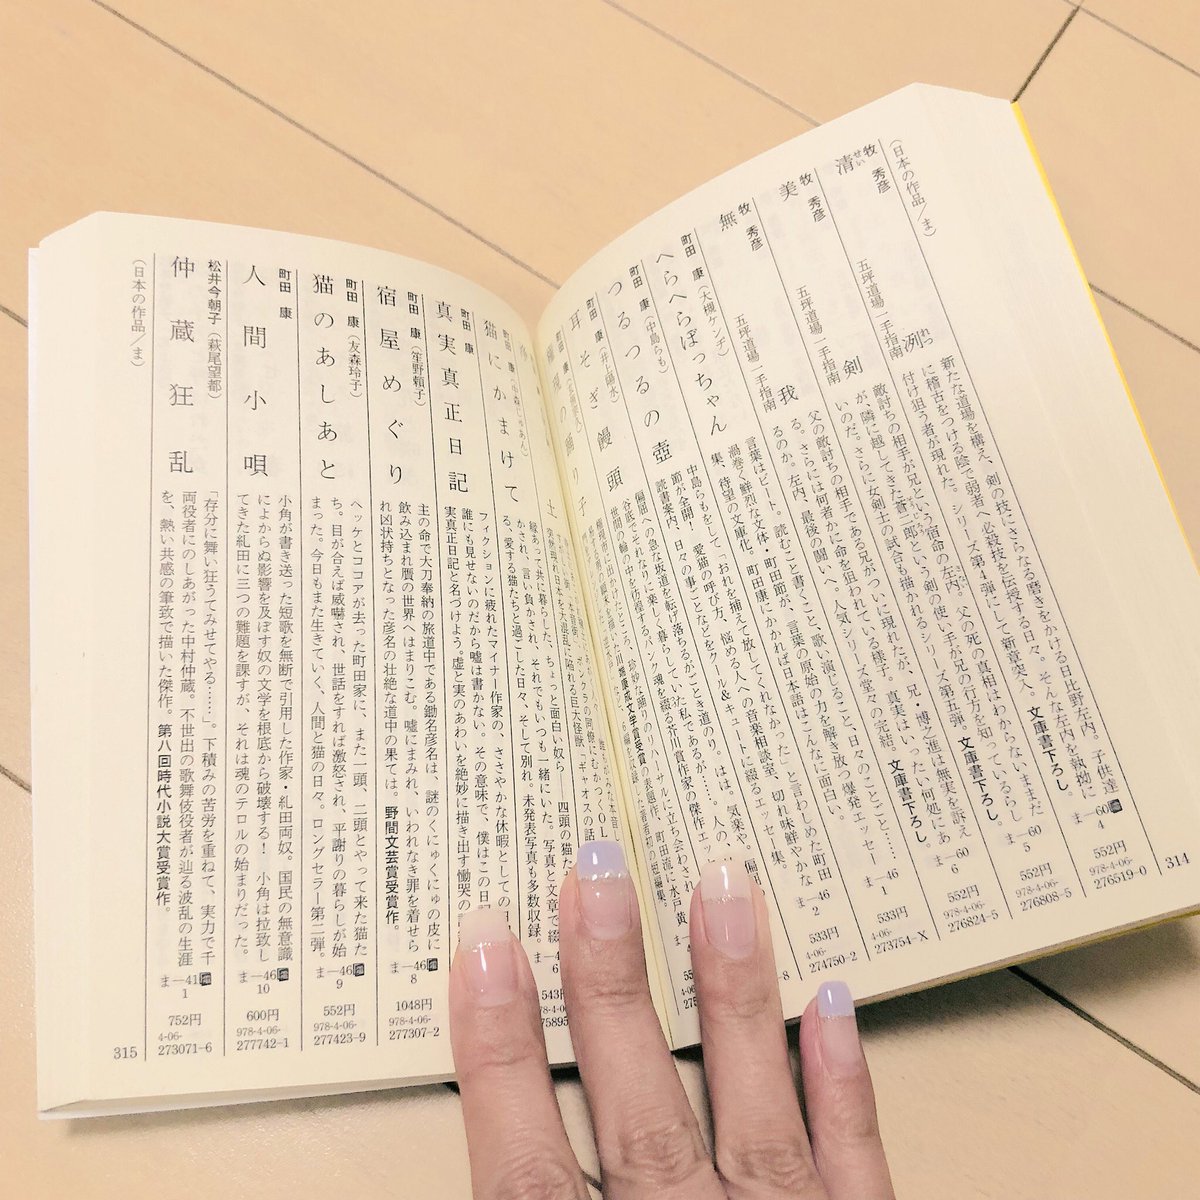 (日本の作品/ま)
牧 秀彦
清 冽
せい れつ
五坪道場一手指南
新たな道場を構え、剣の技にさらなる磨きをかける日比野左内。子供達
に稽古をつける陰で、弱者へ必殺技を伝授する日々。そんな左内を執拗に
付け狙う者が現れた。シリーズ第4弾にして新章突入。文庫書下ろし。
ま-60
4
552円
276519-0
牧 秀彦
美 剣
五坪道場一手指南
敵討ちの相手が兄という宿命の左内。父の死の真相はわからないままだ
が、隣に越してきた蒼二郎という剣の使い手が兄の行方を知っているらし
いのだ。さらに女剣士の試合も描かれるシリーズ第五弾。文庫書下ろし。
ま-60
5
552円
978-4-06-
276808-5
牧 秀彦
無 我
五坪道場一手指南
父の敵討ちの相手である兄がついに現れたが、兄・博之進は無実を訴え
る。さらには何者かに命を狙われている様子。真実はいったい何処にあ
るのか。左内、最後の闘いへ。人気シリーズ堂々の完結。文庫書下ろし。
ま-60
6
552円
978-4-06-
276824-5
町田 康(大槻ケンヂ)
へらへらぼっちゃん
言葉はビート。読むこと書くこと、歌い演じること、日々のこと……。
渦巻く鮮烈な文体・町田節が、言葉の原始の力を解き放つ爆発エッセー
集、待望の文庫化。町田康にかかれば日本語はこんなに面白い。
ま-46
1
533円
4-06-
273754-X
町田 康(中島らも)
つるつるの壺
中島らもをして、「おれを捕えて放してくれなかった」と言わしめた町田
節が全開!愛猫の呼び方、悩める人への音楽相談室、切れ味鮮やかな
読書案内。日々の事ごとなどをクール&キュートに綴るエッセー集。
ま-46
2
533円
4-06-
274750-2
町田 康(井上陽水)
耳そぎ饅頭
314
土
町田 康
猫にかまけて
縁あって共に暮らした、ちょっと面白い奴ら――四頭の猫た
かされ、言い負かされ、それでもいつも一緒にいた。写真と文章で綴
る、愛する猫たちと過ごした日々、そして別れ。未発表写真も多数収録。
6
543円
町田 康
真実真正日記
フィクションに疲れたマイナー作家の、ささやかな休暇としての日
誰にも見せないのだから嘘は書かない。その意味で、僕はこの日記
実真正日記と名づけよう。虚と実のあわいを絶妙に描き出す慟哭の
町田 康(笙野頼子)
宿屋めぐり
主の命で大刀奉納の旅道中である鋤名彦名は、謎のくにゅくにゅの皮に
飲み込まれ贋の世界へはまりこむ。嘘にまみれ、いわれなき罪を着せら
れ凶状持ちとなった彦名の壮絶な道中の果ては。野間文芸賞受賞作。
ま-46
8
1048円
978-4-06-
277307-2
町田 康(友森玲子)
猫のあしあと
ヘッケとココアが去った町田家に、また一頭、二頭とやって来た猫た
ち。目が合えば威嚇され、世話をすれば激怒され、平謝りの暮らしが始
まった。今日もまた生きていく、人間と猫の日々。ロングセラー第二弾。
ま-46
9
552円
978-4-06-
277423-9
町田 康
人間小唄
小角が書き送った短歌を無断で引用した作家・糺田両奴。国民の無意識
によからぬ影響を及ぼす奴の文学を根底から破壊する!小角は拉致し
てきた糺田に三つの難題を課すが、それは魂のテロルの始まりだった。
ま-46
10
600円
978-4-06-
277742-1
松井今朝子(萩尾望都)
仲蔵狂乱
「存分に舞い狂うてみせてやる……」。下積みの苦労を重ねて、実力で千
両役者にのしあがった中村仲蔵。不世出の歌舞伎役者が辿る波乱の生涯
を、熱い共感の筆致で描いた傑作。第八回時代小説大賞受賞作。
ま-41
1
752円
4-06-
273071-6
(日本の作品/ま)
315